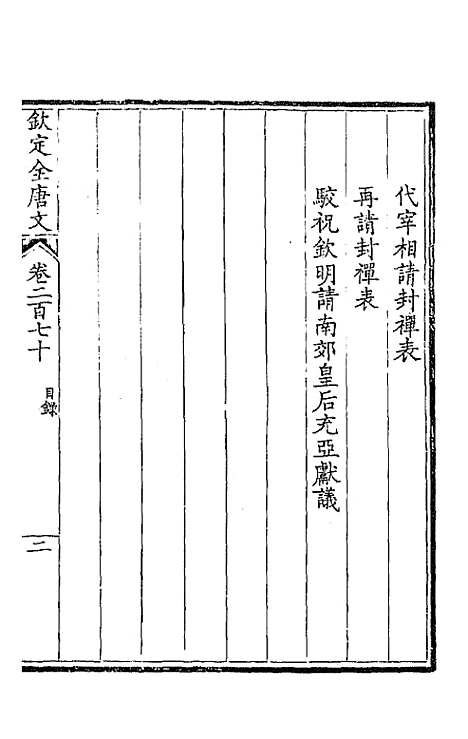 代宰相請封禪表
再請封禪表
駮祝欽明請南郊皇后充亞獻議
欽定全唐文
卷二百七十
目錄
二